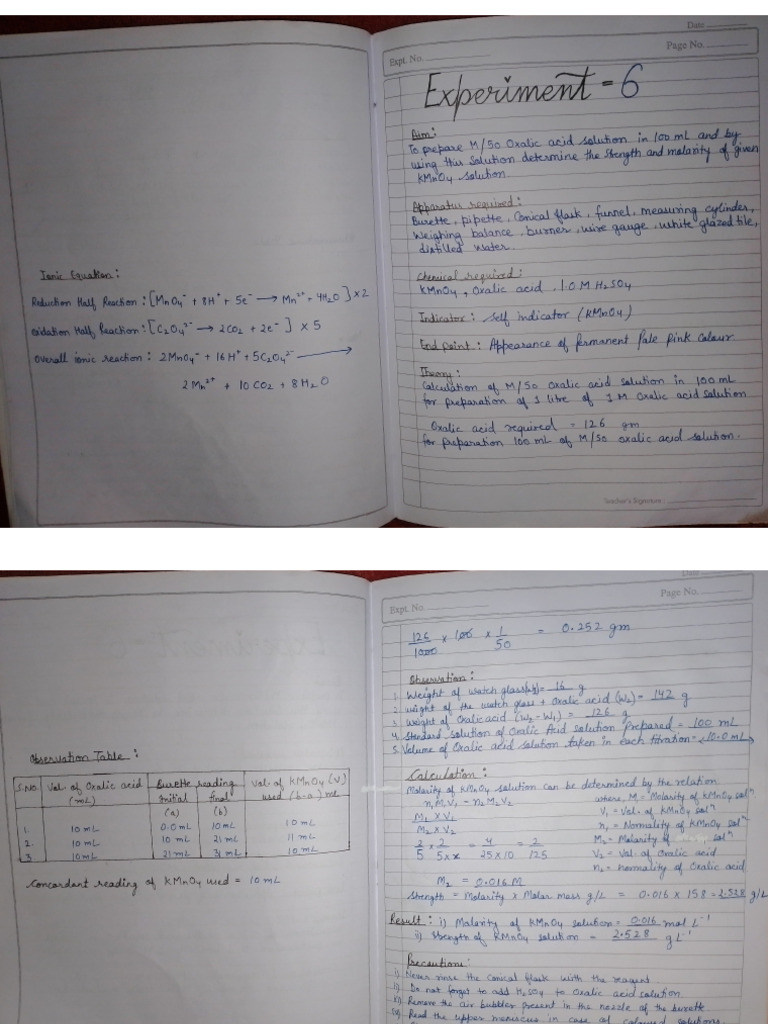 Ionic Equation:
Reduction Half Reaction: [MnO4⁻ + 8H⁺ + 5e⁻ ⟶ Mn²⁺ + 4H2O] x 2
Oxidation Half Reaction: [C2O4²⁻ → 2CO2 + 2e⁻] x 5
Overall ionic reaction: 2MnO4⁻ + 16H⁺ + 5C2O4²⁻ ⟶
2Mn²⁺ + 10CO2 + 8H2O
Date
Expt. No.
Page No.
Experiment = 6
Aim:
To prepare M/50 Oxalic acid solution in 100 mL and by
using this solution determine the strength and molarity of given
KMnO4 solution.
Apparatus required:
Burette, pipette, Conical flask, funnel, measuring cylinder,
Weighing balance, burner, wire gauge, white glazed tile,
distilled water.
Chemical required:
KMnO4, Oxalic acid, 1.0 M H2SO4
Indicator: Self indicator (KMnO4)
End point: Appearance of permanent Pale pink Colour
Theory:
Calculation of M/50 Oxalic acid solution in 100 mL
for preparation of 1 litre of 1 M Oxalic acid solution
Oxalic acid required = 126 gm
for preparation 100 mL of M/50 oxalic acid solution.
Teacher's Signature:
Observation Table:
S.No Vol. of Oxalic acid Burette reading Vol. of KMnO4 (V)
(mL) Initial final used (b-a) mL
(a) (b)
1. 10 mL 0.0 mL 10 mL 10 mL
2. 10 mL 10 mL 21 mL 11 mL
3 10 mL 21 mL 31 mL 10 mL
Concordant reading of KMnO4 used = 10 mL
Date
Expt. No
Page No.
126/1000 x 100 x 1/50 = 0.252 gm
Observation:
1. Weight of watch glass = 16 g
2. weight of the watch glass + Oxalic acid (W2) = 142 g
3. Weight of Oxalic acid (W2 - W1) = 126 g
4. Standard solution of Oxalic Acid solution prepared = 100 mL
5. Volume of Oxalic acid solution taken in each titration = 10.0 mL
Calculation:
Molarity of KMnO4 solution can be determined by the relation
n1M1V1 = n2M2V2 where, M1 = Molarity of KMnO4 solⁿ
M1 x V1 V1 = Vol. of KMnO4 solⁿ
M2 x V2 n1 = Normality of KMnO4 solⁿ
M2 = Molarity of solⁿ
2/5 x 2/5xx = 4/25x10 = 2/125 V2 = Vol. of Oxalic acid
n2 = normality of Oxalic acid
M2 = 0.016 M
Strength = Molarity x Molar mass g/L = 0.016 x 158 = 2.528 g/L
Result: i) Molarity of KMnO4 solution = 0.016 mol L⁻¹
ii) Strength of KMnO4 solution = 2.528 g L⁻¹
Precautions:
i) Never rinse the conical flask with the reagent
ii) Do not forget to add H2SO4 to Oxalic acid solution
iii) Remove the air bubbles present in the nozzle of the burette.
iv) Read the upper meniscus in case of coloured solutions.